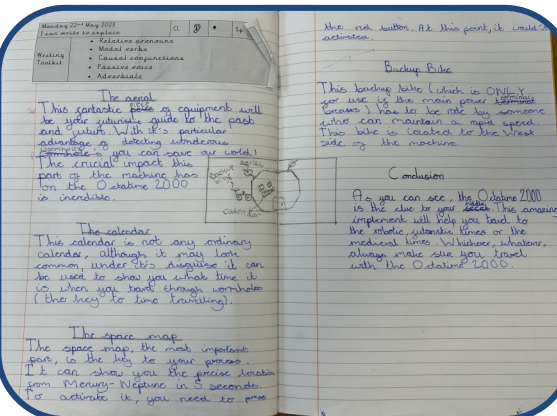 Monday 22nd May 2023
I can write to explain
CL
Writing
Toolkit
Relative pronouns
Modal verbs
Causal conjunctions
Passive voice
Adverbials
The aerial
This fantastic piece of equipment will
be your futuristic guide to the past
and future. With it's particular
advantage of detecting wonderous
you can save our world!
The crucial impact this
part of the machine has
on the Octatime 2000
is incredible.
aerial
Calendar
The calendar
This calendar is not any ordinary
calendar, although it may look
common, under it's disguise it can
be used to show you what time it
is when you travel through wormholes
(the key to time travelling).
The space map
The space map, the most important
part, is the key to your
It can show you the precise location
from Mercury-Neptune in 5 seconds.
To activate it, you need to press
the red button. At this point, it would be
activated.
Backup Bike
This backup bike (which is ONLY
for use is the main power
breaks) has to be rode by someone
who can maintain a rapid speed.
This bike is located to the West
side of the machine.
Conclusion
As you can see, the Octatime 2000
is the clue to your This amazing
implement will help you travel to
the robotic, futuristic times or the
medieval times. Whichever, whatever,
always make sure you travel
with the Octatime 2000.